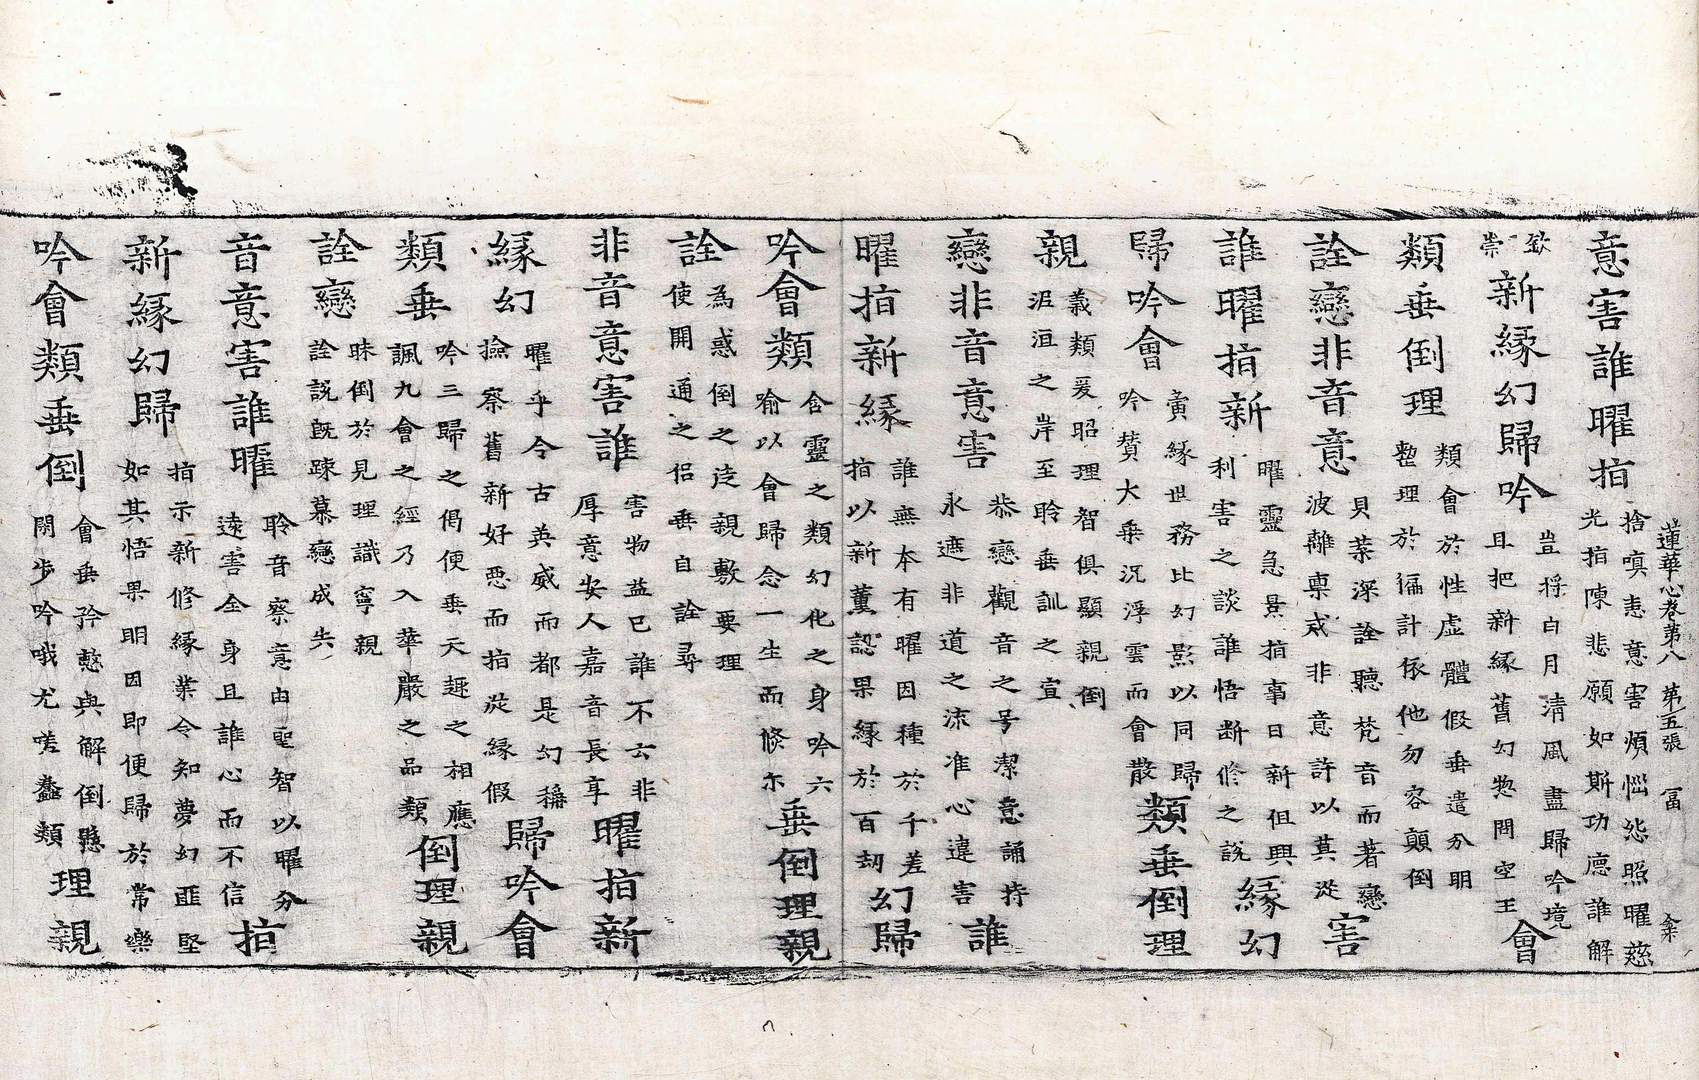 蓮華心卷第八　第五張　冨
意害誰曜指
捨嗔恚意害煩惱怨照曜慈
光指陳悲願如斯功德誰解
欽
崇
新緣幻歸吟
豈將白月清風盡歸吟境
且把新緣舊幻惣問空王
會
類垂倒理
類會於性虛體假垂遣分明
整理於徧計依他勿容顛倒
詮戀非音意
貝葉深詮聽梵音而著戀
波離稟戒非意許以其從
害
誰曜指新
曜靈急景指事日新但興
利害之談誰悟断修之說
緣幻
歸吟會
夤緣世務比幻影以同歸
吟賛大乗沉浮雲而會散
類垂倒理
親
義類爰昭理智俱顯親倒
泥洹之岸至聆垂訓之宣
戀非音意害
恭戀觀音之号潔意誦持
永遮非道之流准心違害
誰
曜指新緣
誰無本有曜因種於千差
指以新薰認果緣於百劫
幻歸
吟會類
含靈之類幻化之身吟六
喻以會歸念一生而倏尒
垂倒理親
詮
為惑倒之迷親敷要理
使開通之侣垂自詮尋
非音意害誰
害物益已誰不云非
厚意安人嘉音長享
曜指新
緣幻
曜乎今古英威而都是幻稱
撿察舊新好惡而指從緣假
歸吟會
類垂
吟三歸之偈便垂天趣之相應
諷九會之經乃入華嚴之品類
倒理親
詮戀
昧倒於見理識寧親
詮說旣踈慕戀成失
音意害誰曜
聆音察意由聖智以曜分
遠害全身且誰心而不信
指
新緣幻歸
指示新修緣業令知夢幻匪堅
如其悟果明因即便歸於常樂
吟會類垂倒
會垂矜愍與解倒懸
閑步吟哦尤嗟蠢類
理親